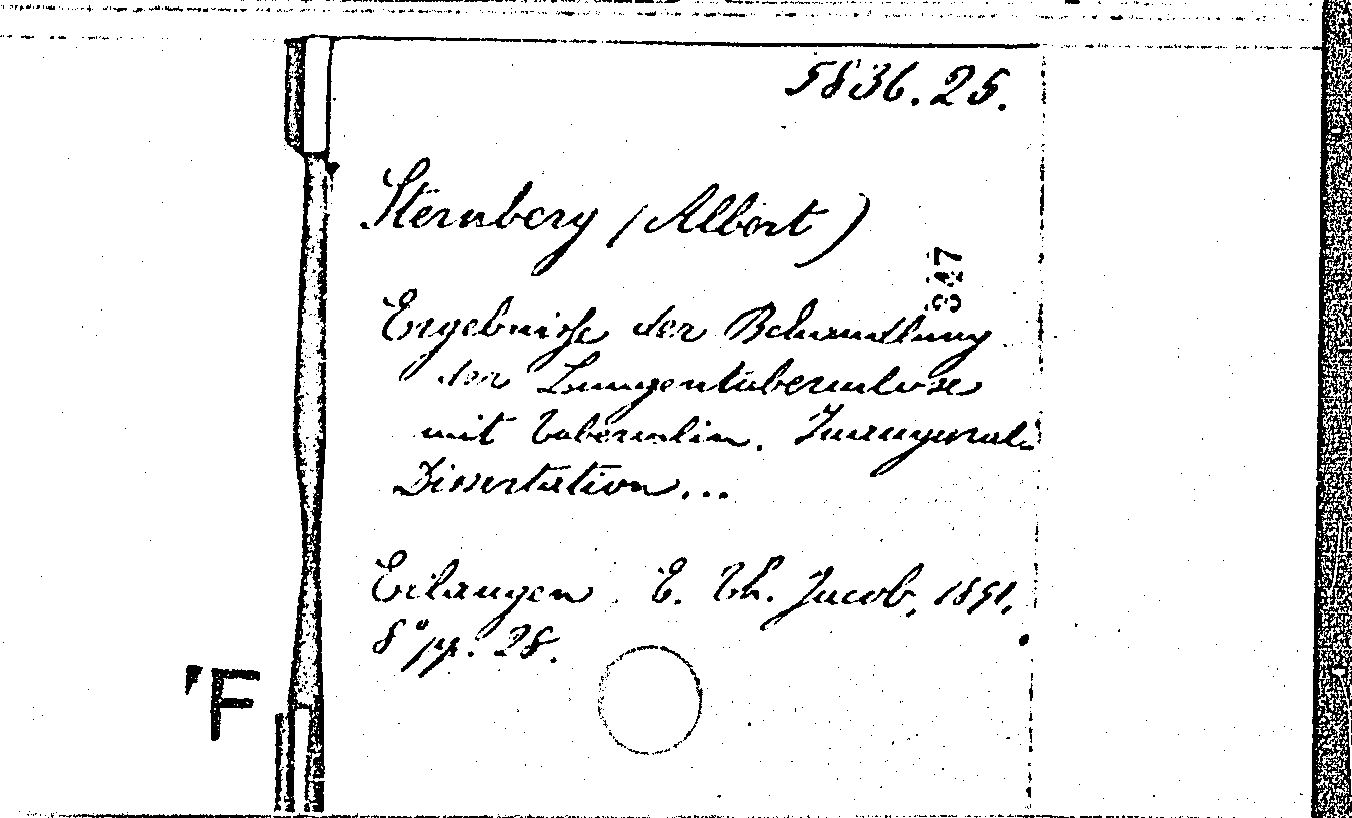 5836.25.
Sternberg (Albert)
347
Ergebnisse der Behandlung
der Lungentuberculose
mit Tuberculin. Inaugural-
Dissertation...
Erlangen E. Th. Jacob, 1891.
8° pp. 28.
'F